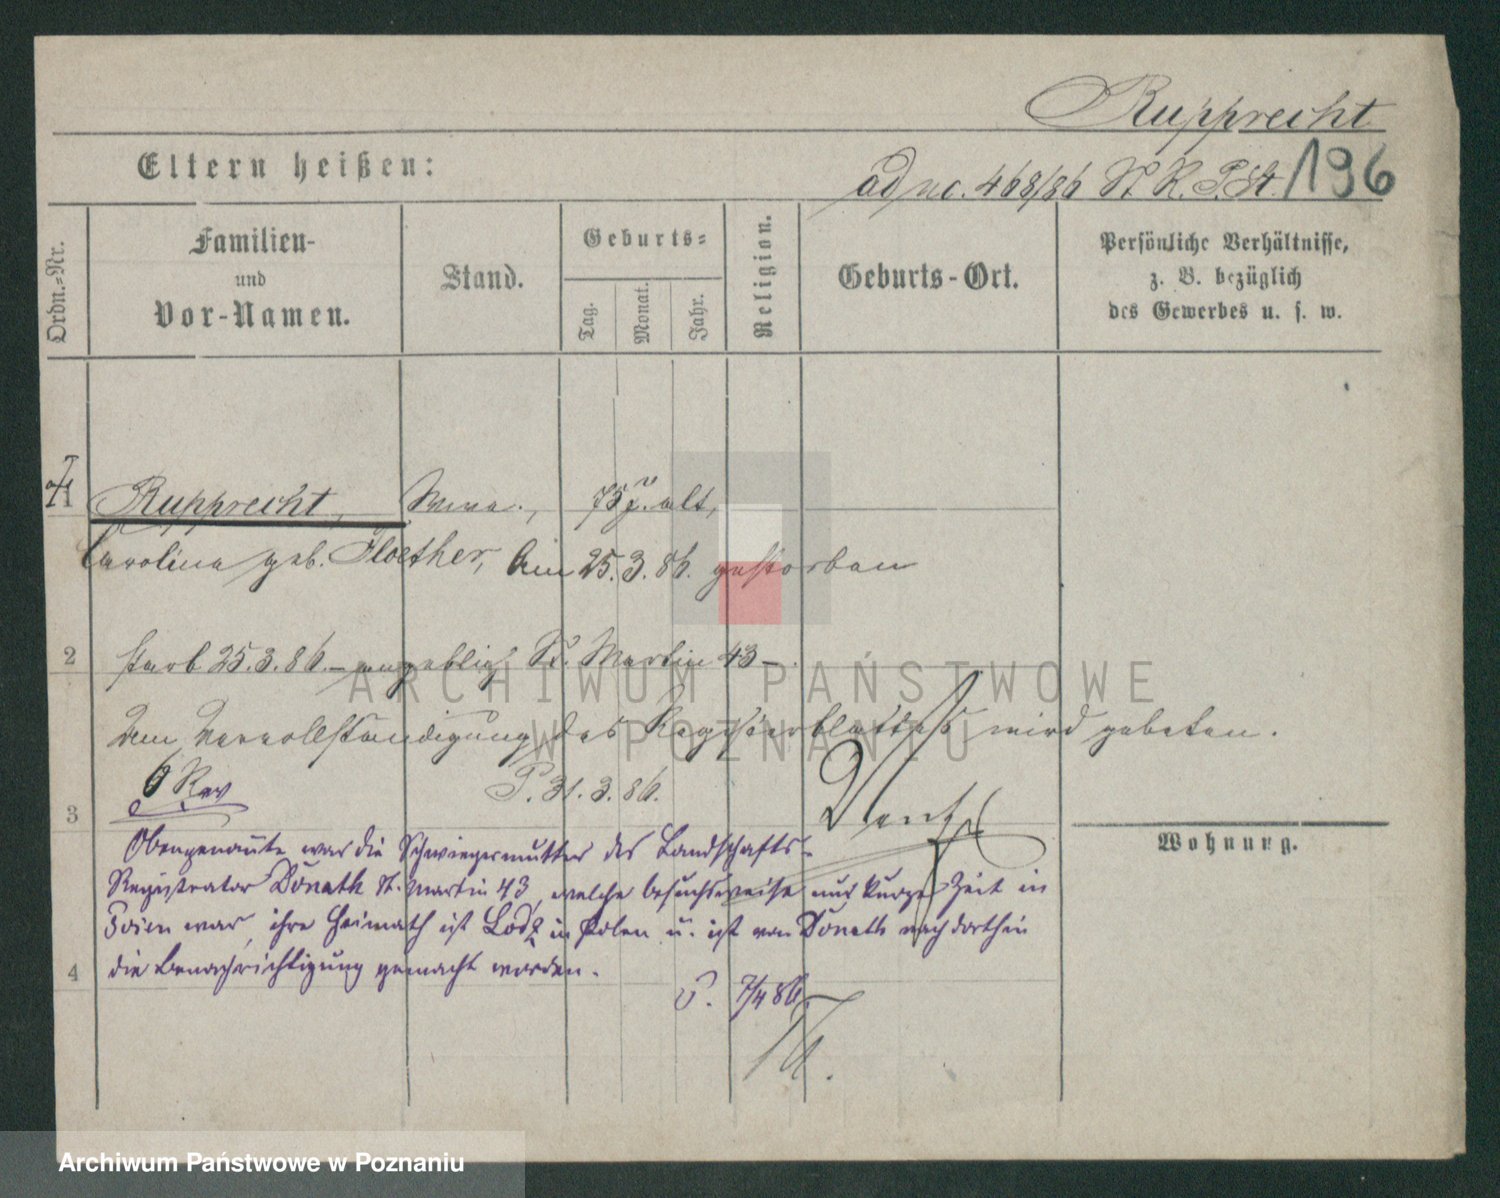 Rupprecht
Eltern heißen:
ad nc. 468/86 St. R. P. St. 196
Ordn.-Nr.
Familien-
und
Vor-Namen.
Stand.
Geburts-
Tag.
Monat.
Jahr.
Religion.
Geburts-Ort.
Persönliche Verhältnisse,
z. B. bezüglich
des Gewerbes u. s. w.
1 Rupprecht, Wwe., 75 J. alt,
Carolina geb. Floether, Am 25.3.86. gestorben
2 starb 25.3.86. – angeblich St. Martin 43 –.
Um Vervollständigung des Registerblattes wird gebeten.
6 Rev P. 31.3.86.
3
Wohnung.
Obengenannte war die Schwiegermutter des Landschafts-
Registrator Donath St. Martin 43, welche besuchsweise nur kurze Zeit in
Posen war, ihre Heimath ist Lodz in Polen u. ist von Donath nach dorthin
4 die Benachrichtigung gemacht worden.
P. 7/4 86.
ARCHIWUM PAŃSTWOWE
W POZNANIU
Archiwum Państwowe w Poznaniu